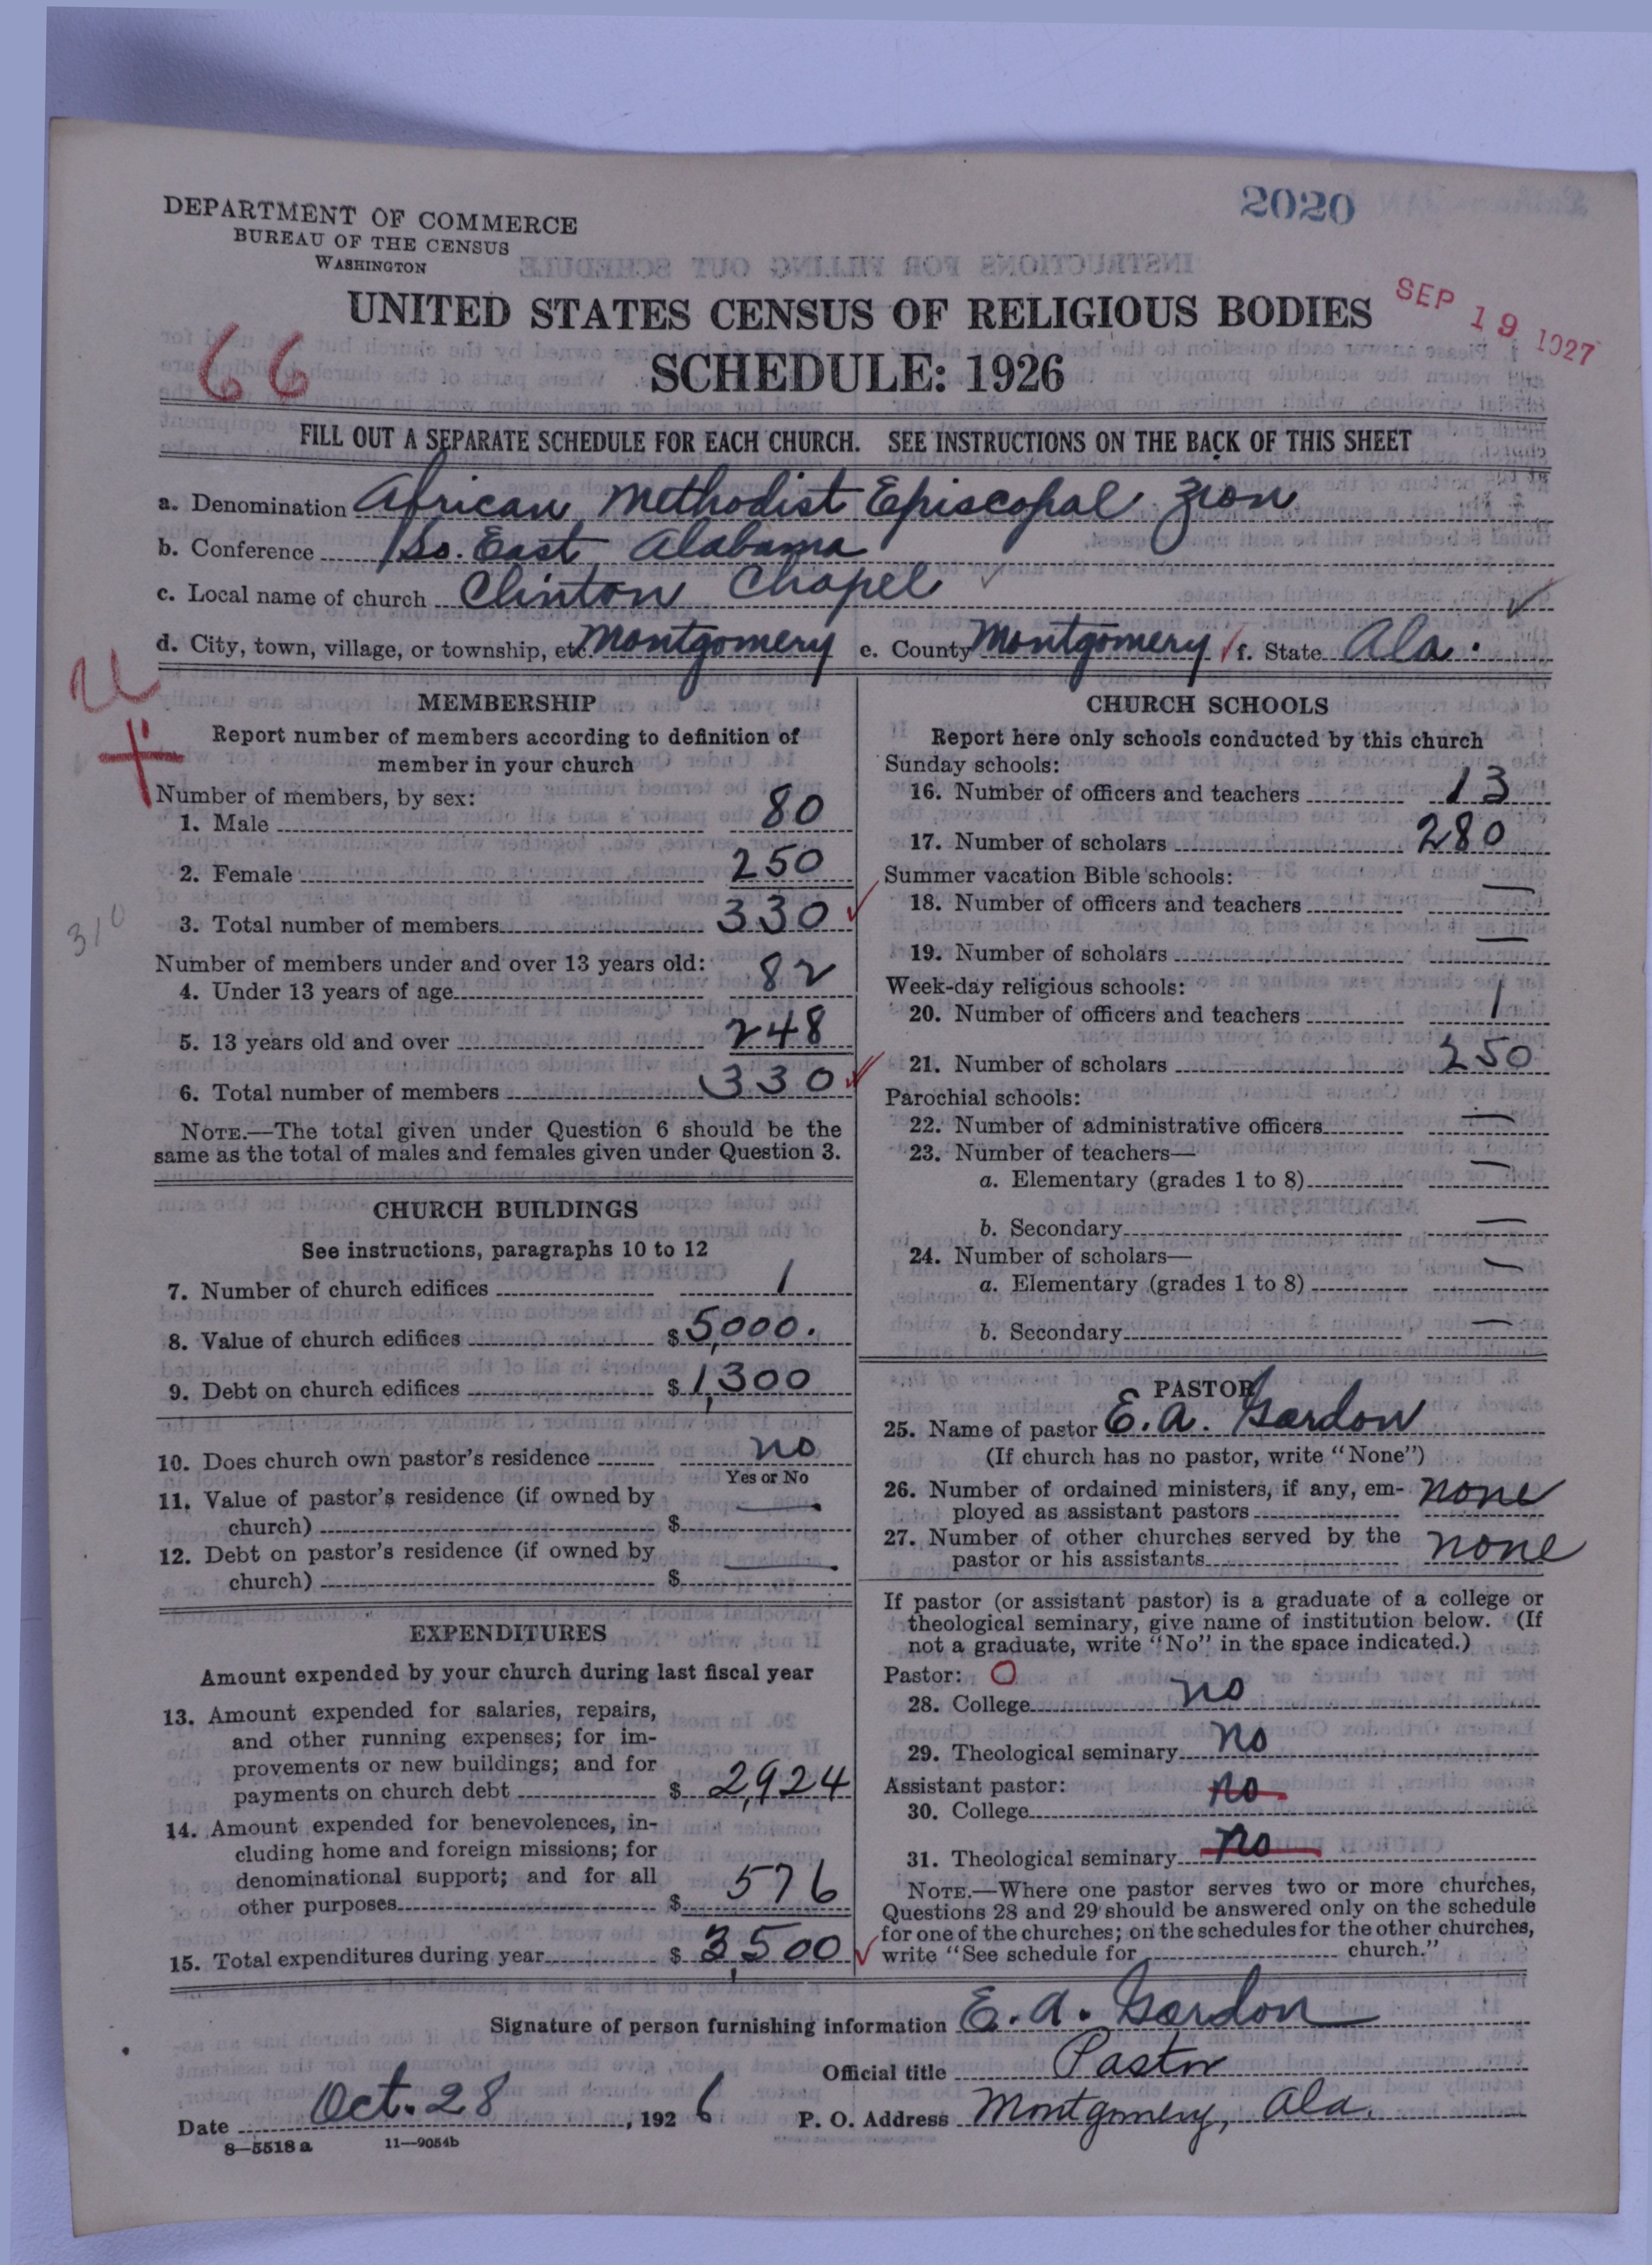 2020
DEPARTMENT OF COMMERCE
BUREAU OF THE CENSUS
WASHINGTON
UNITED STATES CENSUS OF RELIGIOUS BODIES
SEP 19 1927
66
SCHEDULE: 1926
FILL OUT A SEPARATE SCHEDULE FOR EACH CHURCH. SEE INSTRUCTIONS ON THE BACK OF THIS SHEET
a. Denomination African Methodist Episcopal Zion
b. Conference So. East Alabama
c. Local name of church Clinton Chapel
d. City, town, village, or township, etc. Montgomery e. County Montgomery f. State Ala.
MEMBERSHIP
Report number of members according to definition of
member in your church
Number of members, by sex:
1. Male 80
2. Female 250
3. Total number of members 330
310
Number of members under and over 13 years old:
4. Under 13 years of age 82
5. 13 years old and over 248
6. Total number of members 330
NOTE.—The total given under Question 6 should be the
same as the total of males and females given under Question 3.
CHURCH BUILDINGS
See instructions, paragraphs 10 to 12
7. Number of church edifices 1
8. Value of church edifices $ 5,000.
9. Debt on church edifices $ 1,300
10. Does church own pastor's residence no
Yes or No
11. Value of pastor's residence (if owned by
church) $ —
12. Debt on pastor's residence (if owned by
church) $ —
EXPENDITURES
Amount expended by your church during last fiscal year
13. Amount expended for salaries, repairs,
and other running expenses; for im-
provements or new buildings; and for
payments on church debt $ 2,924
14. Amount expended for benevolences, in-
cluding home and foreign missions; for
denominational support; and for all
other purposes $ 576
15. Total expenditures during year $ 3,500
CHURCH SCHOOLS
Report here only schools conducted by this church
Sunday schools:
16. Number of officers and teachers 13
17. Number of scholars 280
Summer vacation Bible schools:
18. Number of officers and teachers —
19. Number of scholars —
Week-day religious schools:
20. Number of officers and teachers 1
21. Number of scholars 250
Parochial schools:
22. Number of administrative officers —
23. Number of teachers—
a. Elementary (grades 1 to 8) —
b. Secondary —
24. Number of scholars—
a. Elementary (grades 1 to 8) —
b. Secondary —
PASTOR
25. Name of pastor E. A. Gordon
(If church has no pastor, write "None")
26. Number of ordained ministers, if any, em-
ployed as assistant pastors none
27. Number of other churches served by the
pastor or his assistants none
If pastor (or assistant pastor) is a graduate of a college or
theological seminary, give name of institution below. (If
not a graduate, write "No" in the space indicated.)
Pastor: O
28. College no
29. Theological seminary no
Assistant pastor:
30. College no
31. Theological seminary no
NOTE.—Where one pastor serves two or more churches,
Questions 28 and 29 should be answered only on the schedule
for one of the churches; on the schedules for the other churches,
write "See schedule for church."
Signature of person furnishing information E. A. Gordon
Official title Pastor
Date Oct. 28, 1926 P. O. Address Montgomery, Ala.
8—5518 a 11—9054b